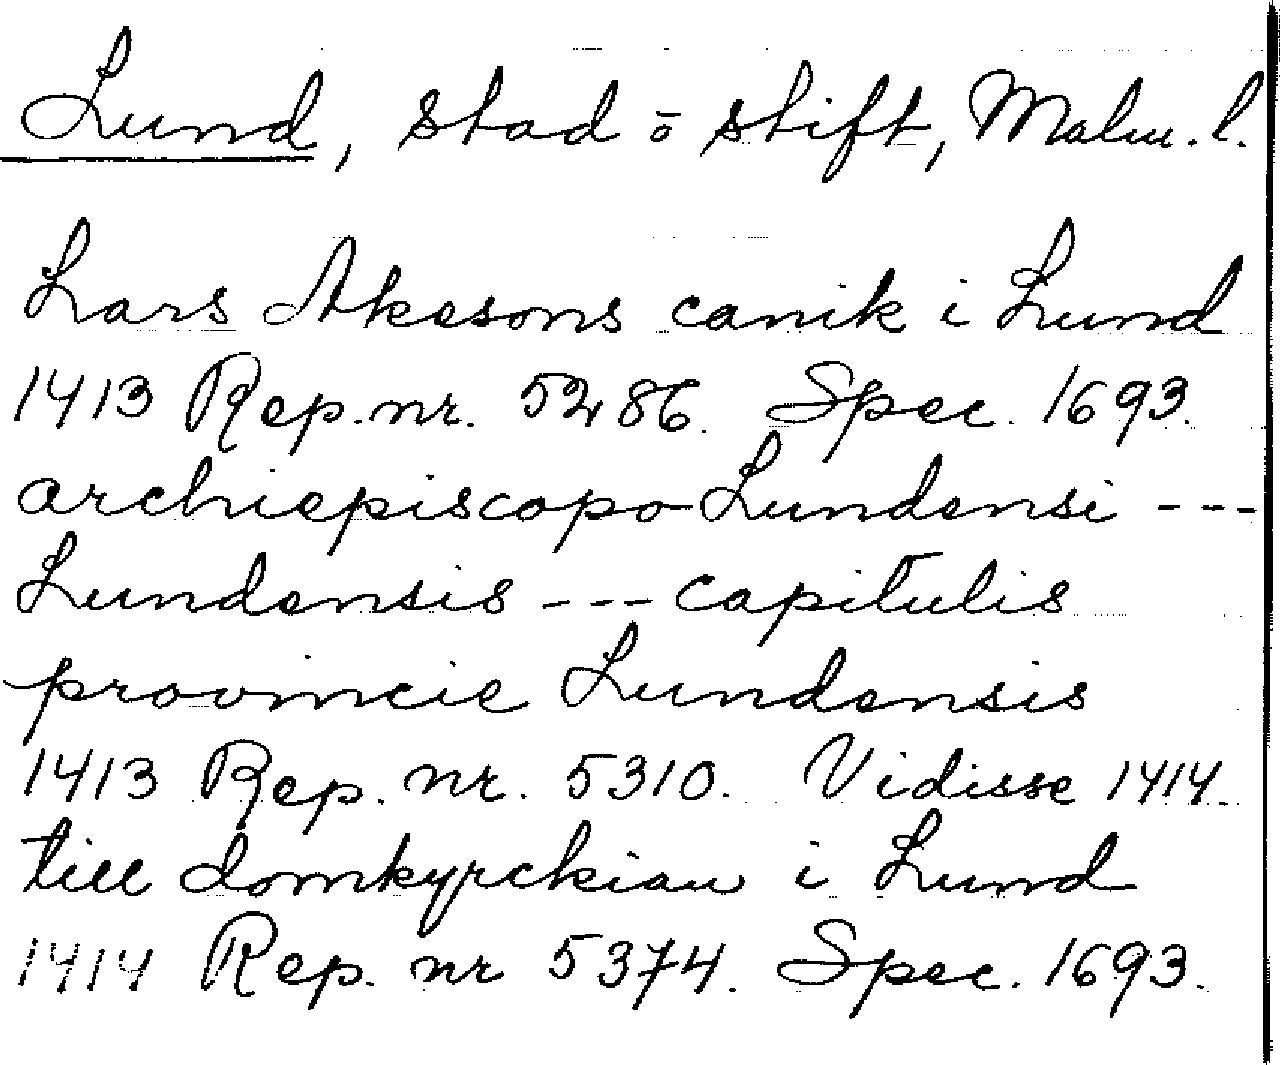 Lund, stad o stift, Malm. l.
Lars Akesons canik i Lund
1413 Rep. nr. 5286. Spec. 1693.
archiepiscopo Lundensi ---
Lundensis --- capitulis
provincie Lundensis
1413 Rep. nr. 5310. Vidisse 1414
till domkyrckian i Lund
1414 Rep. nr 5374. Spec. 1693.